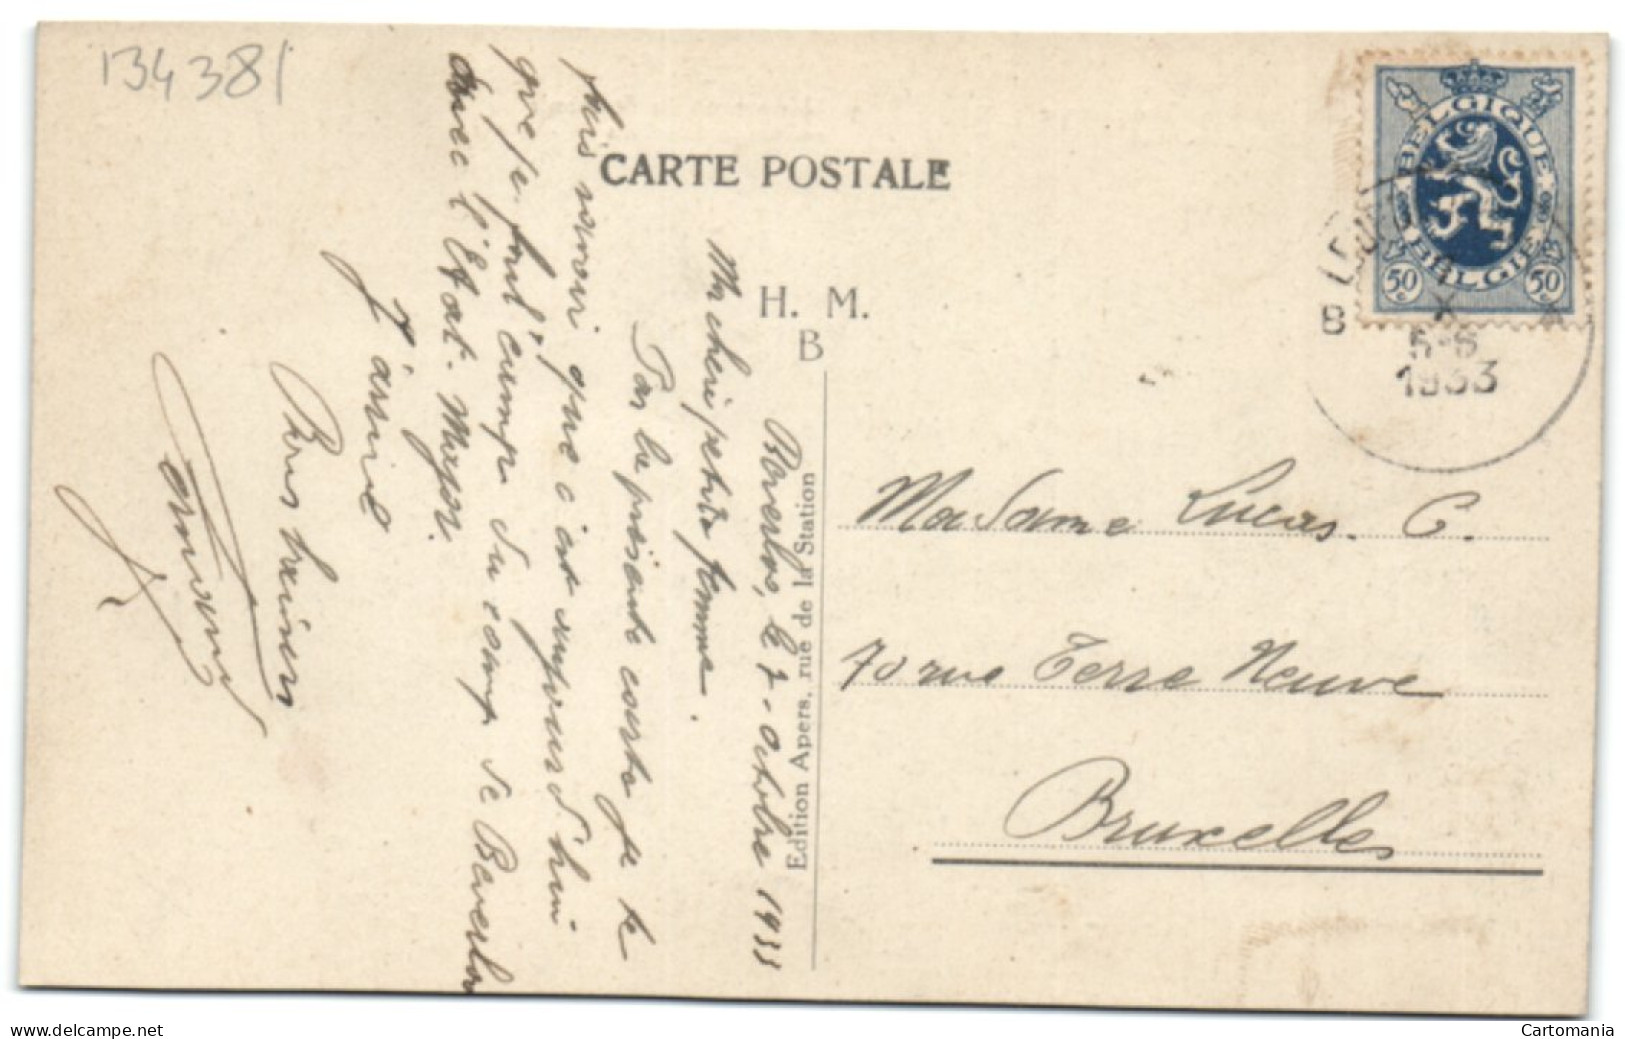 134381
CARTE POSTALE
H. M.
B
Edition Apers, rue de la Station
BELGIQUE
BELGIE
50 c
50 c
B
X
5-6
1933
Beverloo, le 7 - octobre 1933
Ma chérie petite femme.
Par la présente carte je te
fais savoir que c'est aujourd'hui
que je fout l'camp du camp de Beverloo
avec l'Etat-Major.
J'arrive
Bons baisers
Madame Lucas. C.
70 rue Terre Neuve
Bruxelles
www.delcampe.net
Cartomania